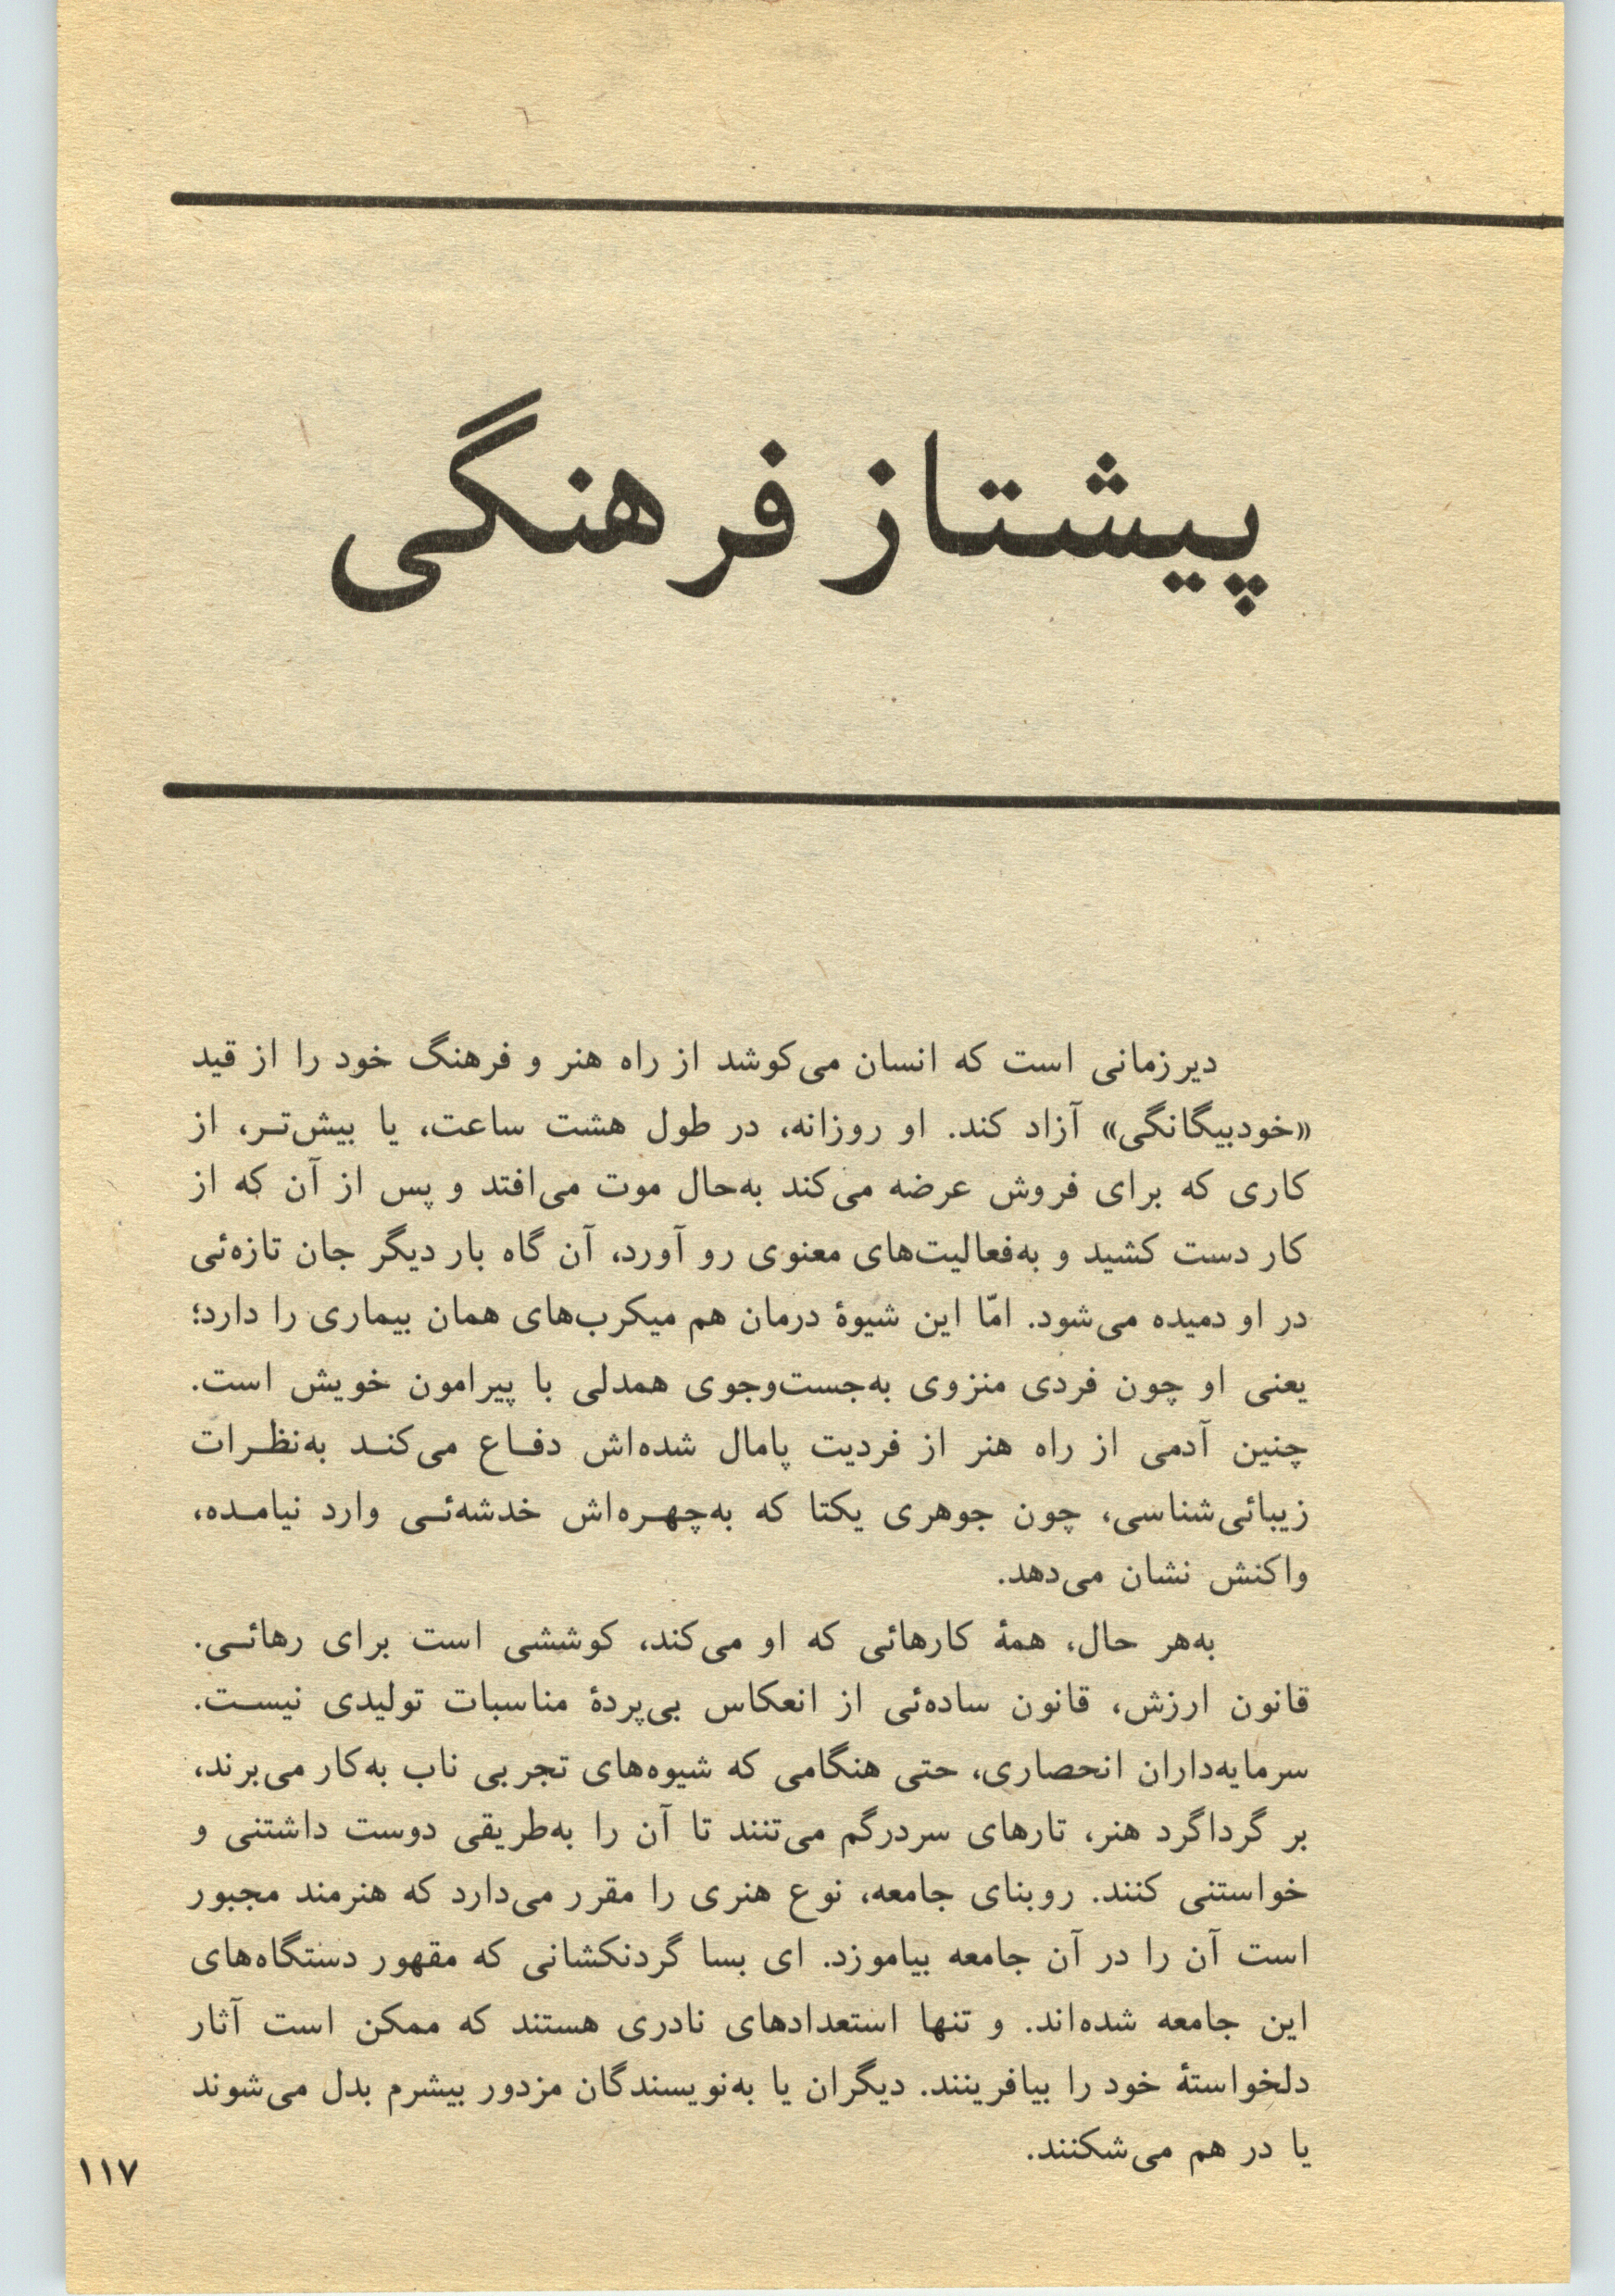 پیشتاز فرهنگی
دیرزمانی است که انسان می‌کوشد از راه هنر و فرهنگ خود را از قید
«خودبیگانگی» آزاد کند. او روزانه، در طول هشت ساعت، یا بیش‌تـر، از
کاری که برای فروش عرضه می‌کند به‌حال موت می‌افتد و پس از آن که از
کار دست کشید و به‌فعالیت‌های معنوی رو آورد، آن گاه بار دیگر جان تازه‌ئی
در او دمیده می‌شود. امّا این شیوهٔ درمان هم میکرب‌های همان بیماری را دارد؛
یعنی او چون فردی منزوی به‌جست‌وجوی همدلی با پیرامون خویش است.
چنین آدمی از راه هنر از فردیت پامال شده‌اش دفـاع می‌کنـد به‌نظـرات
زیبائی‌شناسی، چون جوهری یکتا که به‌چهـره‌اش خدشه‌ئـی وارد نیامـده،
واکنش نشان می‌دهد.
به‌هر حال، همهٔ کارهائی که او می‌کند، کوششی است برای رهائـی.
قانون ارزش، قانون ساده‌ئی از انعکاس بی‌پردهٔ مناسبات تولیدی نیسـت.
سرمایه‌داران انحصاری، حتی هنگامی که شیوه‌های تجربی ناب به‌کار می‌برند،
بر گرداگرد هنر، تارهای سردرگم می‌تنند تا آن را به‌طریقی دوست داشتنی و
خواستنی کنند. روبنای جامعه، نوع هنری را مقرر می‌دارد که هنرمند مجبور
است آن را در آن جامعه بیاموزد. ای بسا گردنکشانی که مقهور دستگاه‌های
این جامعه شده‌اند. و تنها استعدادهای نادری هستند که ممکن است آثار
دلخواستهٔ خود را بیافرینند. دیگران یا به‌نویسندگان مزدور بیشرم بدل می‌شوند
یا در هم می‌شکنند.
۱۱۷